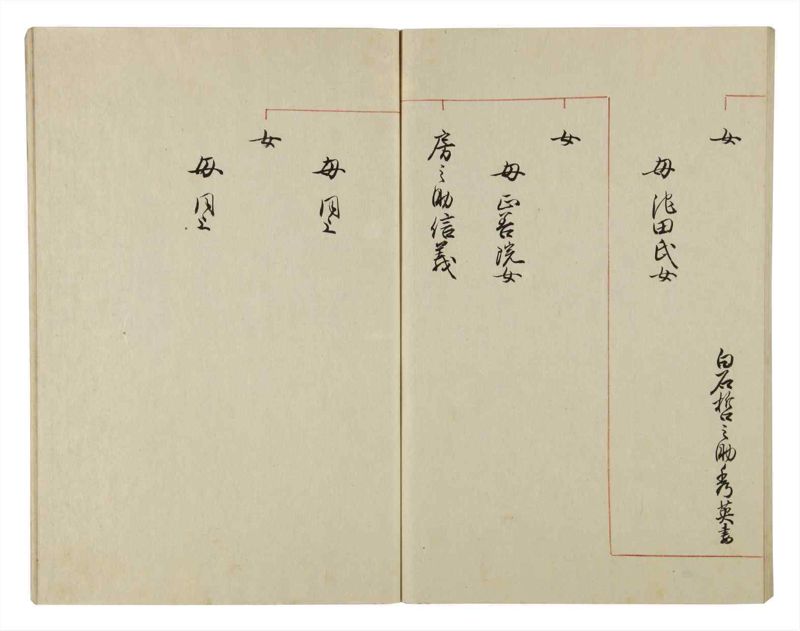 女
白石哲之助秀英妻
母池田氏女
女
母正善院女
房之助信義
母同上
女
母同上